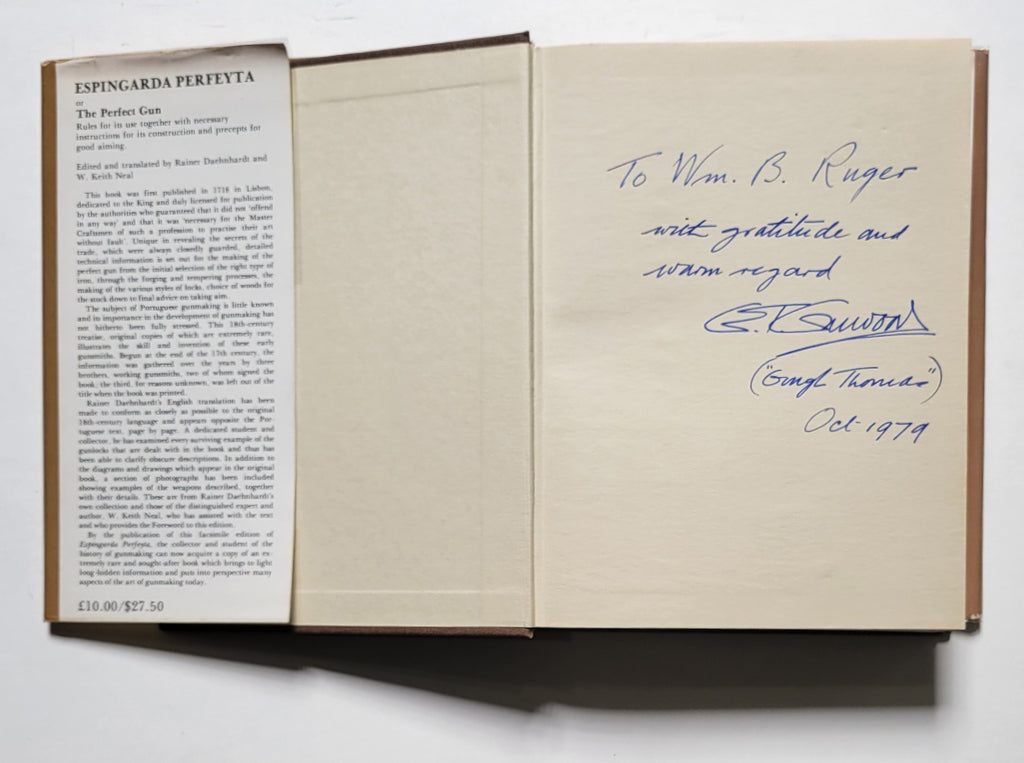 ESPINGARDA PERFEYTA
or
The Perfect Gun
Rules for its use together with necessary
instructions for its construction and precepts for
good aiming.
Edited and translated by Rainer Daehnhardt and
W. Keith Neal
This book was first published in 1718 in Lisbon,
dedicated to the King and duly licensed for publication
by the authorities who guaranteed that it did not 'offend
in any way' and that it was 'necessary for the Master
Craftsmen of such a profession to practise their art
without fault'. Unique in revealing the secrets of the
trade, which were always closely guarded, detailed
technical information is set out for the making of the
perfect gun from the initial selection of the right type of
iron, through the forging and tempering processes, the
making of the various styles of locks, choice of woods for
the stock down to final advice on taking aim.
The subject of Portuguese gunmaking is little known
and its importance in the development of gunmaking has
not hitherto been fully stressed. This 18th-century
treatise, original copies of which are extremely rare,
illustrates the skill and invention of these early
gunsmiths. Begun at the end of the 17th century, the
information was gathered over the years by three
brothers, working gunsmiths, two of whom signed the
book, the third, for reasons unknown, was left out of the
title when the book was printed.
Rainer Daehnhardt's English translation has been
made to conform as closely as possible to the original
18th-century language and appears opposite the Por-
tuguese text, page by page. A dedicated student and
collector, he has examined every surviving example of the
gunlocks that are dealt with in the book and thus has
been able to clarify obscure descriptions. In addition to
the diagrams and drawings which appear in the original
book, a section of photographs has been included
showing examples of the weapons described, together
with their details. These are from Rainer Daehnhardt's
own collection and those of the distinguished expert and
author, W. Keith Neal, who has assisted with the text
and who provides the Foreword to this edition.
By the publication of this facsimile edition of
Espingarda Perfeyta, the collector and student of the
history of gunmaking can now acquire a copy of an ex-
tremely rare and sought-after book which brings to light
long-hidden information and puts into perspective many
aspects of the art of gunmaking today.
£10.00/$27.50
To Wm. B. Ruger
with gratitude and
warm regard
("Gough Thomas")
Oct 1979